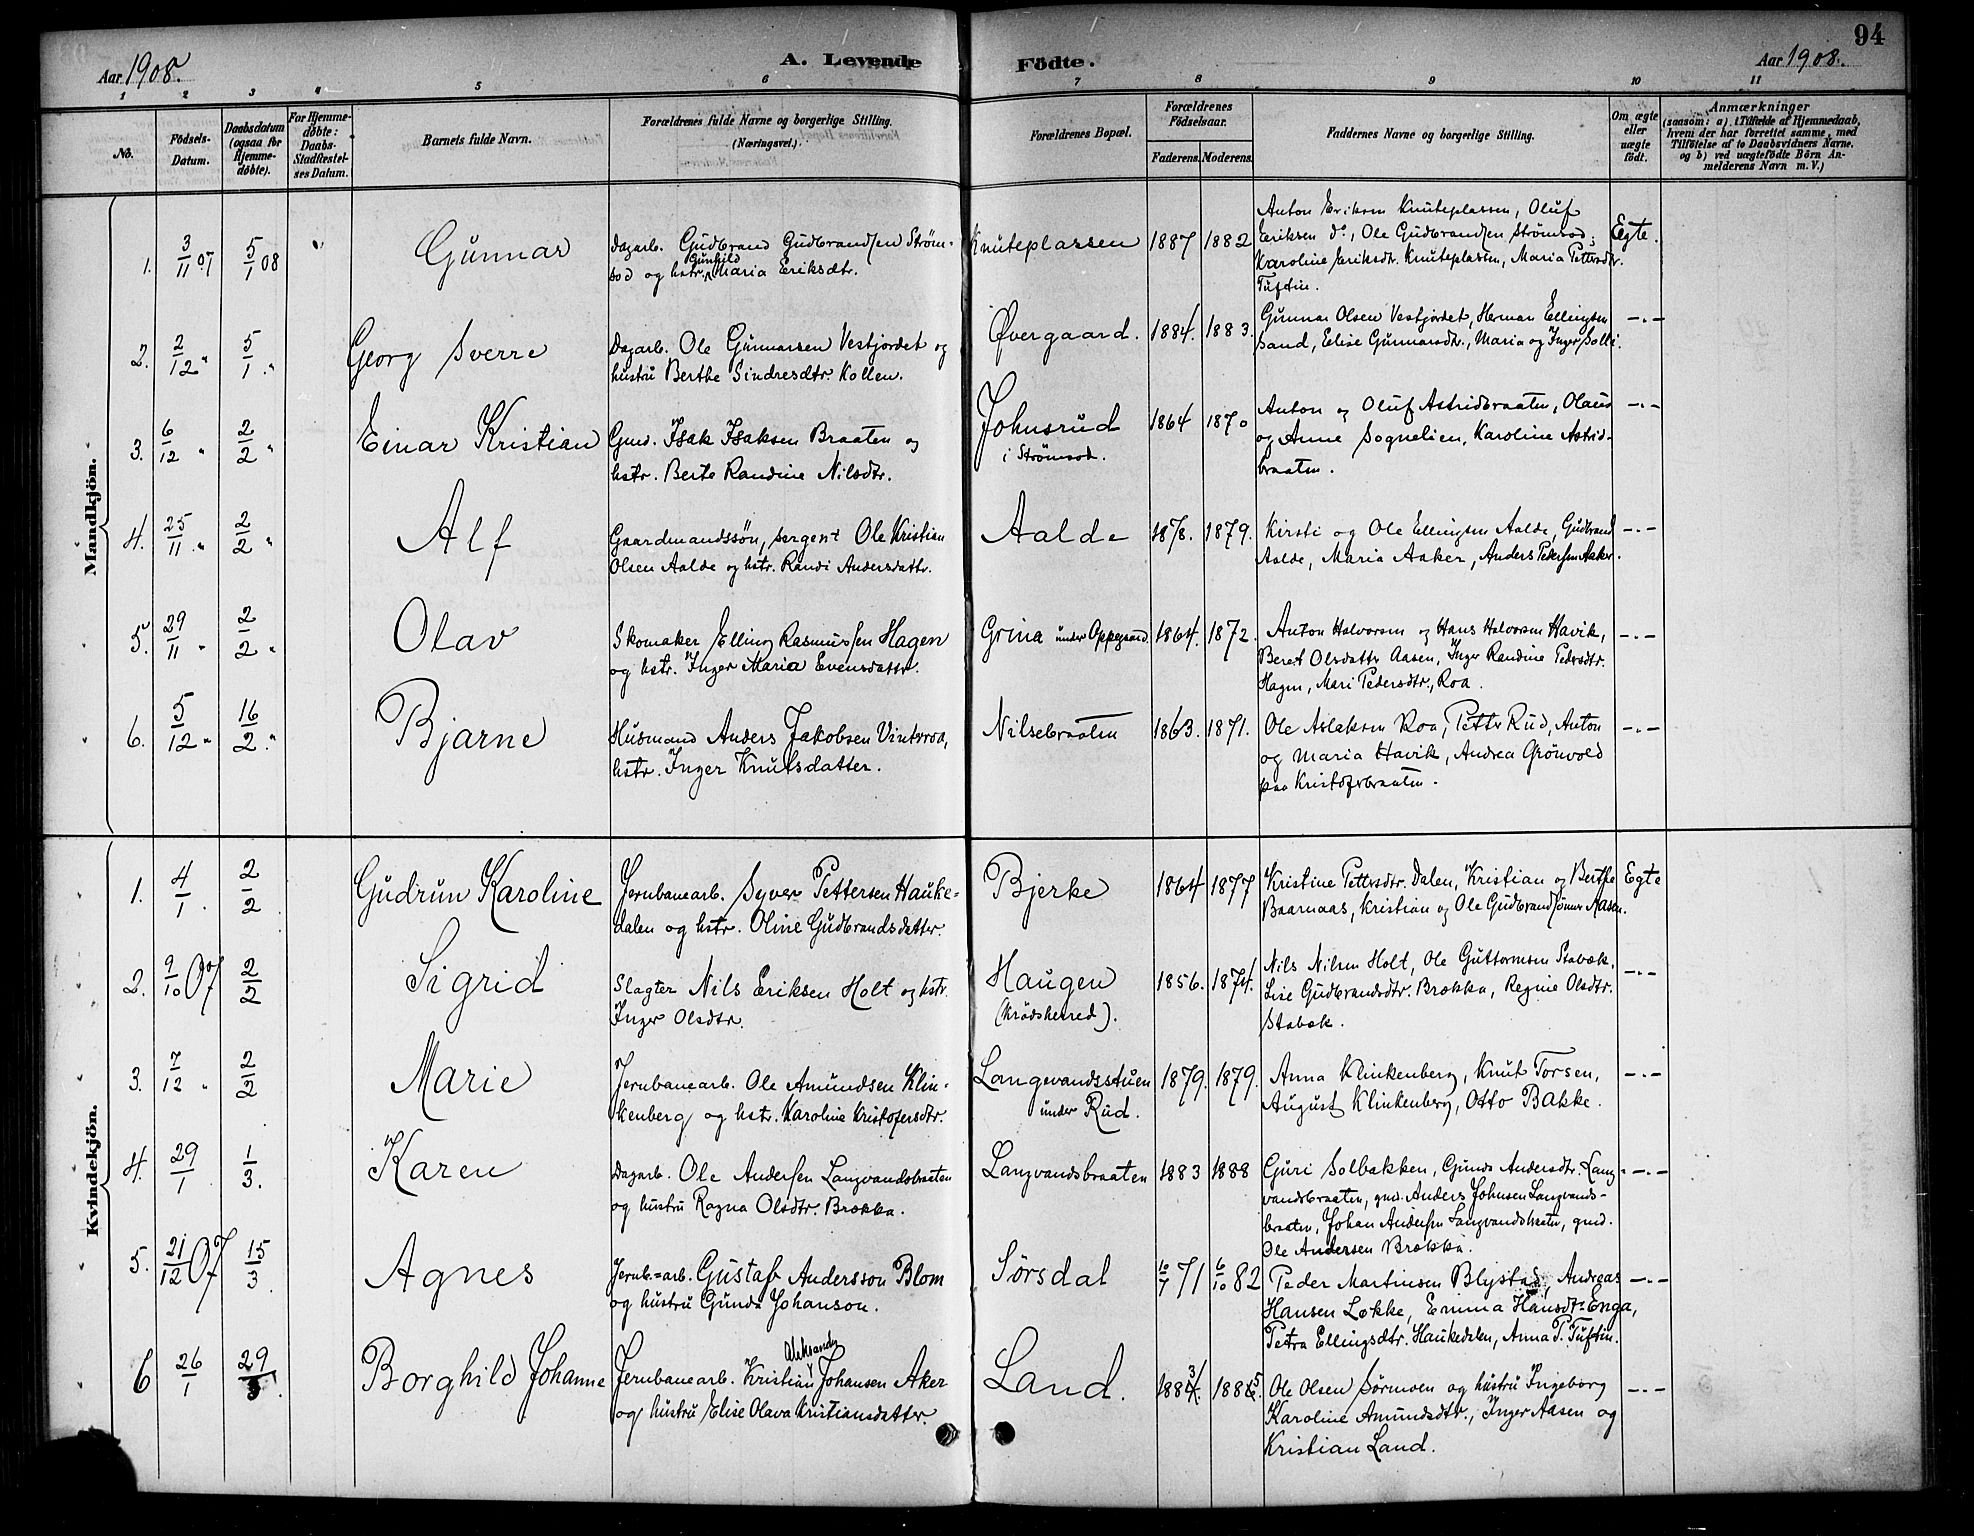 94
Aar 1908. A. Levende Fødte. Aar 1908.
1 2 3 4 5 6 7 8 9 10 11
No. Fødsels-Datum. Daabsdatum (ogsaa for Hjemmedøbte). For Hjemmedøbte: Daabs-Stadfæstelses Datum. Barnets fulde Navn. Forældrenes fulde Navne og borgerlige Stilling. (Næringsvei.) Forældrenes Bopæl. Forældrenes Fødselsaar. Faderens. Moderens. Faddernes Navne og borgerlige Stilling. Om ægte eller uægte født. Anmærkninger (saasom: a) i Tilfælde af Hjemmedaab, hvem der har forrettet samme, med Tilføielse af to Daabsvidners Navne, og b) ved uægtefødte Børn Anmelderens Navn m. V.)
Mandkjön.
1. 3/11 07 5/1 08 " Gunnar Dagarb. Gudbrand Gudbrandsen Strøm- Knuteplassen 1887 1882 Anton Eriksen Knuteplassen, Oluf Egte.
sod og hstr. Gunhild Maria Eriksdtr. Eriksen do, Ole Gudbrandsen Strømsod,
Karoline Eriksdt. Knuteplassen, Maria Pettersdtr.
Tuftin.
2. 2/12 " 5/1 " Georg Sverre Dagarb. Ole Gunnarsen Vestjordet og Øvergaard. 1884. 1883. Gunnar Olsen Vestjordet, Herman Ellingsen -"-
hustru Berthe Sindresdtr. Kollen. Sand, Elise Gunnarsdtr., Maria og Inger Solli.
3. 6/12 " 2/2 " Einar Kristian Gmd. Isak Isaksen Braaten og Johnsrud 1864 1870 Anton og Oluf Astridbraaten, Olaus -"-
hstr. Berte Randine Nilsdtr. i Strømsod. og Anne Sognelien, Karoline Astrid-
braaten.
4. 25/11 " 2/2 " Alf Gaardmandssøn, sergent Ole Kristian Aalde 1878. 1879. Kirsti og Ole Ellingsen Aalde, Gudbrand -"-
Olsen Aalde og hstr. Randi Andersdattr. Aalde, Maria Aaker, Anders Pedersen Aaker.
5. 29/11 " 2/2 " Olav Skomaker Elling Rasmussen Hagen Grina under Oppegaard 1864. 1872. Anton Halvorsen og Hans Halvorsen Havik, -"-
og hstr. Inger Maria Evensdattr. Beret Olsdattr Aasen, Inger Randine Pedersdtr.
Hagen, Mari Pedersdtr., Roa.
6. 5/12 " 16/2 " Bjarne Husmand Anders Jakobsen Vinterroa, Nilsebraaten 1863. 1871. Ole Aslaksen Roa, Petter Rud, Anton -"-
hstr. Inger Knutsdatter. og Maria Havik, Andrea Grönvold
paa Kristofersbraaten.
Kvindekjön.
1. 4/1 2/2 Gudrun Karoline Jernbanearb. Syver Pettersen Hauke- Bjerke 1864 1877 Kristine Pettersdtr. Dalen, Kristian og Berthe Egte
dalen og hstr. Oline Gudbrandsdatter. Baarnaas, Kristian og Ole Gudbrandsönner Aasen.
2. 9/10 07 2/2 Sigrid Slagter Nils Eriksen Holt og hstr. Haugen 1856. 1874. Nils Nilsen Holt, Ole Guttormsen Stabæk, -"-
Inger Olsdtr. (Krödsherred). Lise Gudbrandsdtr. Brækka, Regine Olsdtr.
Stabæk.
3. 7/12 " 2/2 Marie Jernbanearb. Ole Amundsen Klin- Langevandsstuen 1879. 1879. Anna Klinkenberg, Knut Torsen, -"-
kenberg og hstr. Karoline Kristofersdtr. under Rud. August Klinkenberg, Otto Bakke.
4. 29/1 1/3. Karen Dagarb. Ole Andersen Langvandsbraaten Langvandsbraaten 1883 1888 Guri Solbakken, Gunda Andersdtr. Lang- -"-
og hustru Ragna Olsdtr. Brækka. vandsbraaten, gmd. Anders Johnsen Langvands-
braaten, Johan Andersen Langvandsbraaten, gmd.
Ole Andersen Brækka.
5. 21/12 07 15/3 Agnes Jernb.=arb. Gustaf Andersson Blom Sörsdal 10/7 71 6/10 82 Peder Martinsen Blystad, Andreas -"-
og hustru Gunda Johanson. Hansen Løkke, Emma Hansdt. Enga,
Petra Ellingsdtr. Haukedalen, Anna P. Tuftin.
6 26/1 29/3. Borghild Johanne Jernbanearb. Kristian Aleksander Johansen Aker Land. 1883 1885 Ole Olsen Sörmoen og hustru Ingeborg -"-
og hustru Elise Olava Kristiansdatter. Karoline Amundsdtr., Inger Aasen og
Kristian Land.